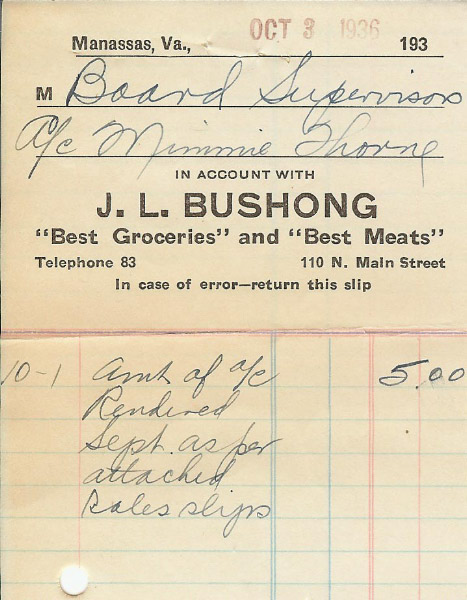 OCT 3 1936
Manassas, Va., 193
M Board Supervisors
A/c Minnie Thorne
IN ACCOUNT WITH
J. L. BUSHONG
"Best Groceries" and "Best Meats"
Telephone 83 110 N. Main Street
In case of error—return this slip
10-1 Amt of a/c 5.00
Rendered
Sept. as per
attached
sales slips